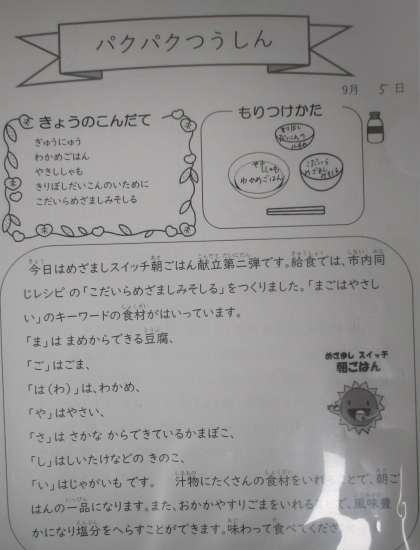 パクパクつうしん
9月 5日
きょうのこんだて
ぎゅうにゅう
わかめごはん
やきししゃも
きりぼしだいこんのいために
こだいらめざましみそしる
もりつけかた
きりぼし
だいこんの
いために
やきししゃも
わかめごはん
こだいら
めざまし
みそしる
今日はめざましスイッチ朝ごはん献立第二弾です。給食では、市内同
じレシピの「こだいらめざましみそしる」をつくりました。「まごはやさし
い」のキーワードの食材がはいっています。
「ま」は まめからできる豆腐、
「ご」はごま、
「は（わ）」は、わかめ、
「や」はやさい、
「さ」は さかな からできているかまぼこ、
「し」はしいたけなどの きのこ、
「い」はじゃがいも です。 汁物にたくさんの食材をいれることで、朝ご
はんの一品になります。また、おかかやすりごまをいれる で、風味豊
かになり塩分をへらすことができます。味わって食べてくださ
めざまし スイッチ
朝ごはん